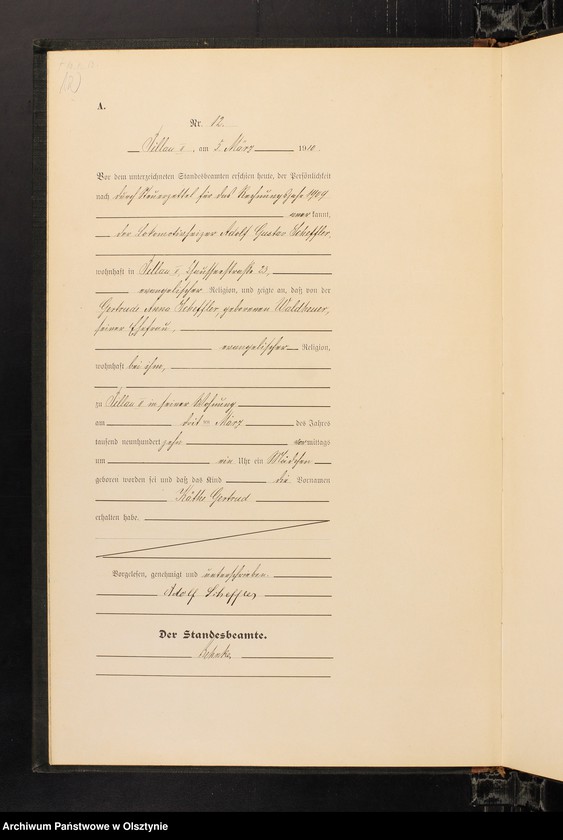 (12)
A.
Nr. 12.
Pillau I, am 5. März 1910.
Vor dem unterzeichneten Standesbeamten erschien heute, der Persönlichkeit
nach durch Steuerzettel für das Rechnungsjahr 1909
anerkannt,
der Lokomotivheizer Adolf Gustav Scheffler,
wohnhaft in Pillau I, Chausseestraße
evangelischer Religion, und zeigte an, daß von der
Gertrude Anna Scheffler, geborenen Waldhauer,
seiner Ehefrau,
evangelischer Religion,
wohnhaft bei ihm,
zu Pillau I in seiner Wohnung
am März des Jahres
tausend neunhundert zehn mittags
um ein Uhr ein Mädchen
geboren worden sei und daß das Kind die Vornamen
Käthe Gertrud
erhalten habe.
Vorgelesen, genehmigt und unterschrieben
Adolf Scheffler
Der Standesbeamte.
Archiwum Państwowe w Olsztynie